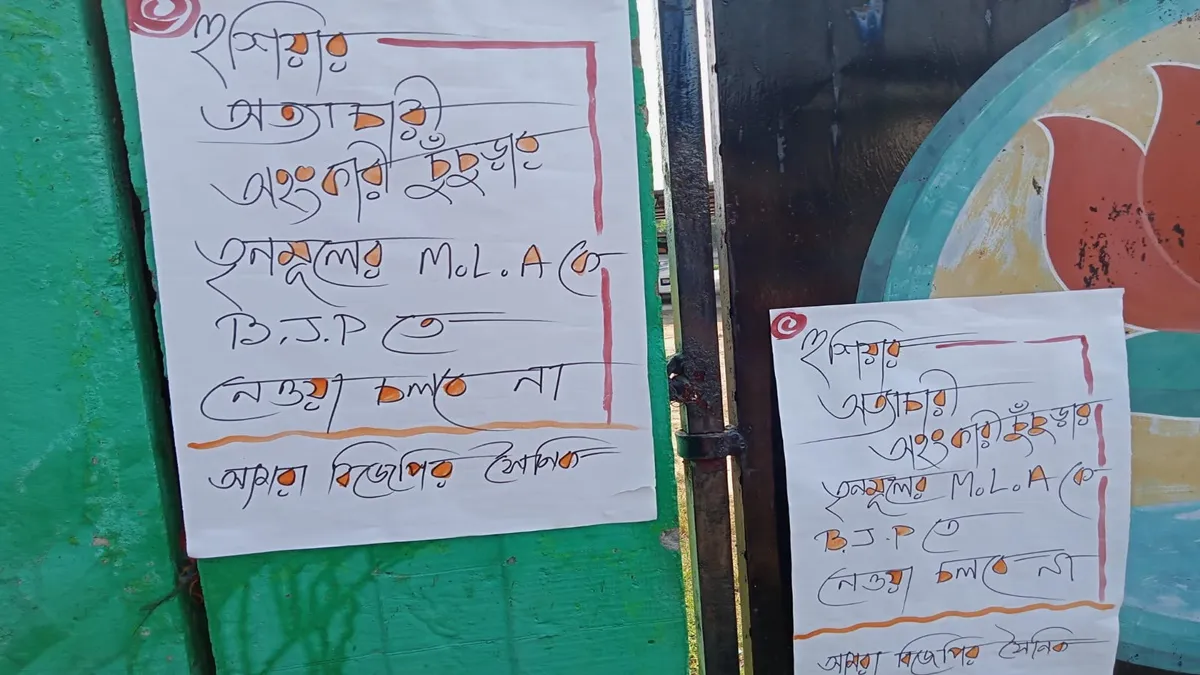 হুশিয়ার
অত্যাচারী
অহংকারী চুঁচুড়ার
তৃনমূলের M.L.A কে
B.J.P তে
নেওয়া চলবে না
আমরা বিজেপির সৈনিক
হুশিয়ার
অত্যাচারী
অহংকারী চুঁচুড়ার
তৃনমূলের M.L.A কে
B.J.P তে
নেওয়া চলবে না
আমরা বিজেপির সৈনিক